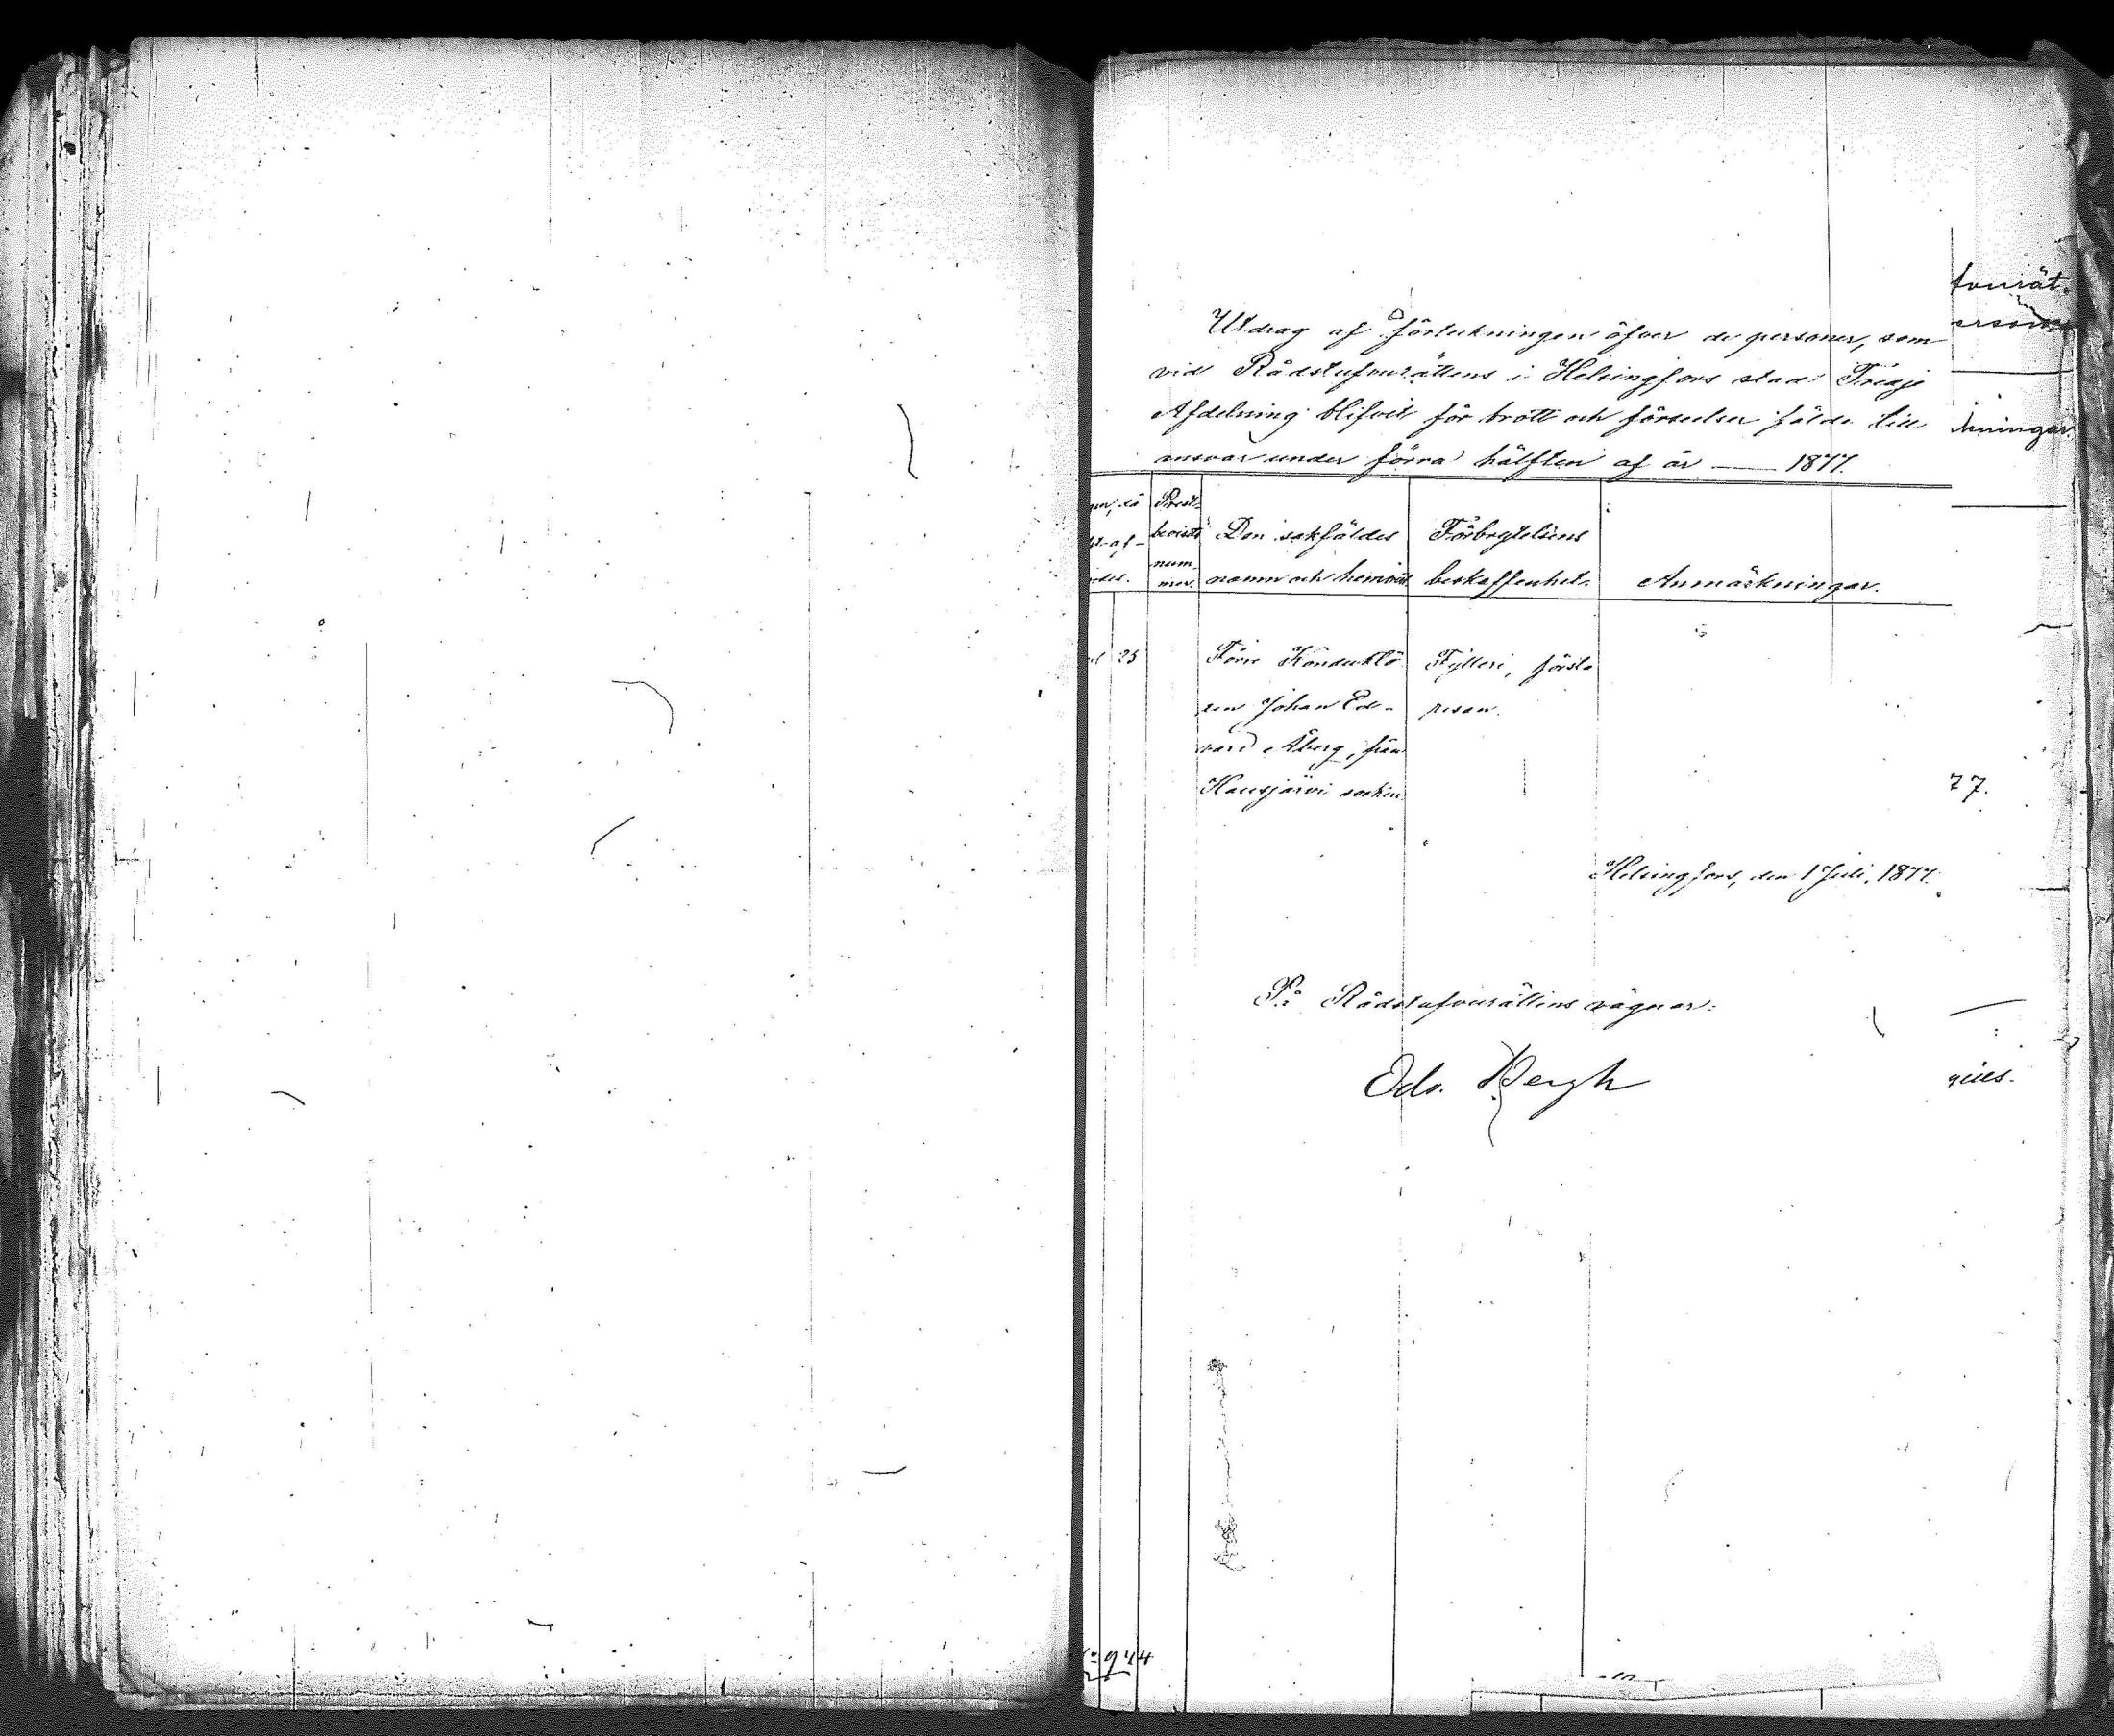 Utdrag af förteckningen öfver de personer, som
vid Rådstufvurättens i Helsingfors stad Tredje
Afdelning blifvit för brott och förseelser fälde till
ansvar under förra hälften af år — 1877.
Prest-
bevisets
num-
mer.
Den sakfäldes
namn och hemvist
Förbrytelsens
beskaffenhet.
Anmärkningar.
25
Förre Konduktö
ren Johan Ed-
vard Åberg, från
Hausjärvi socken.
Fylleri, första
resan.
Helsingfors, den 1 Juli, 1877.
På Rådstufvurättens vägnar:
Edv. Bergh
944
tvurät-
ersoner
kningar.
77.